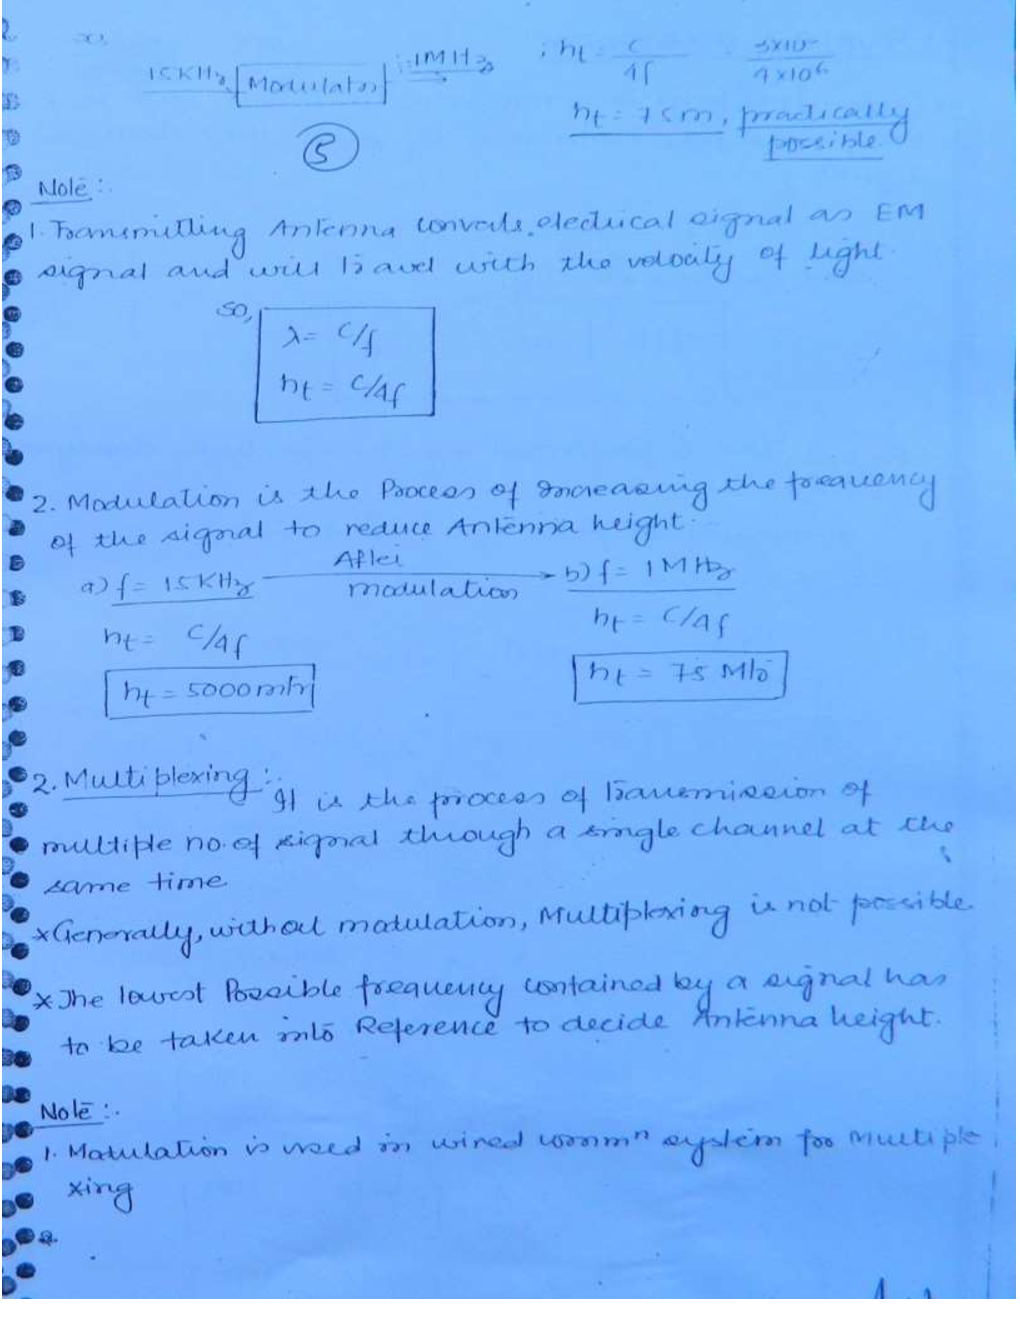 15KHz Modulator 1MHz ∴ ht = c/4f 3x10 / 4x10⁶
ht = 75m, practically possible
5
Note :.
1. Transmitting Antenna converts electrical signal as EM
signal and will travel with the velocity of light.
so,
λ = c/f
ht = c/4f
2. Modulation is the Process of Increasing the frequency
of the signal to reduce Antenna height.
a) f = 15KHz After modulation b) f = 1MHz
ht = c/4f ht = c/4f
ht = 5000mtr ht = 75 Mtr
2. Multiplexing :. It is the process of Transmission of
multiple no. of signal through a single channel at the
same time
x Generally, without modulation, Multiplexing is not possible.
x The lowest Possible frequency contained by a signal has
to be taken into Reference to decide Antenna height.
Note :.
1. Modulation is used in wired commⁿ system for Multiple
xing
2.